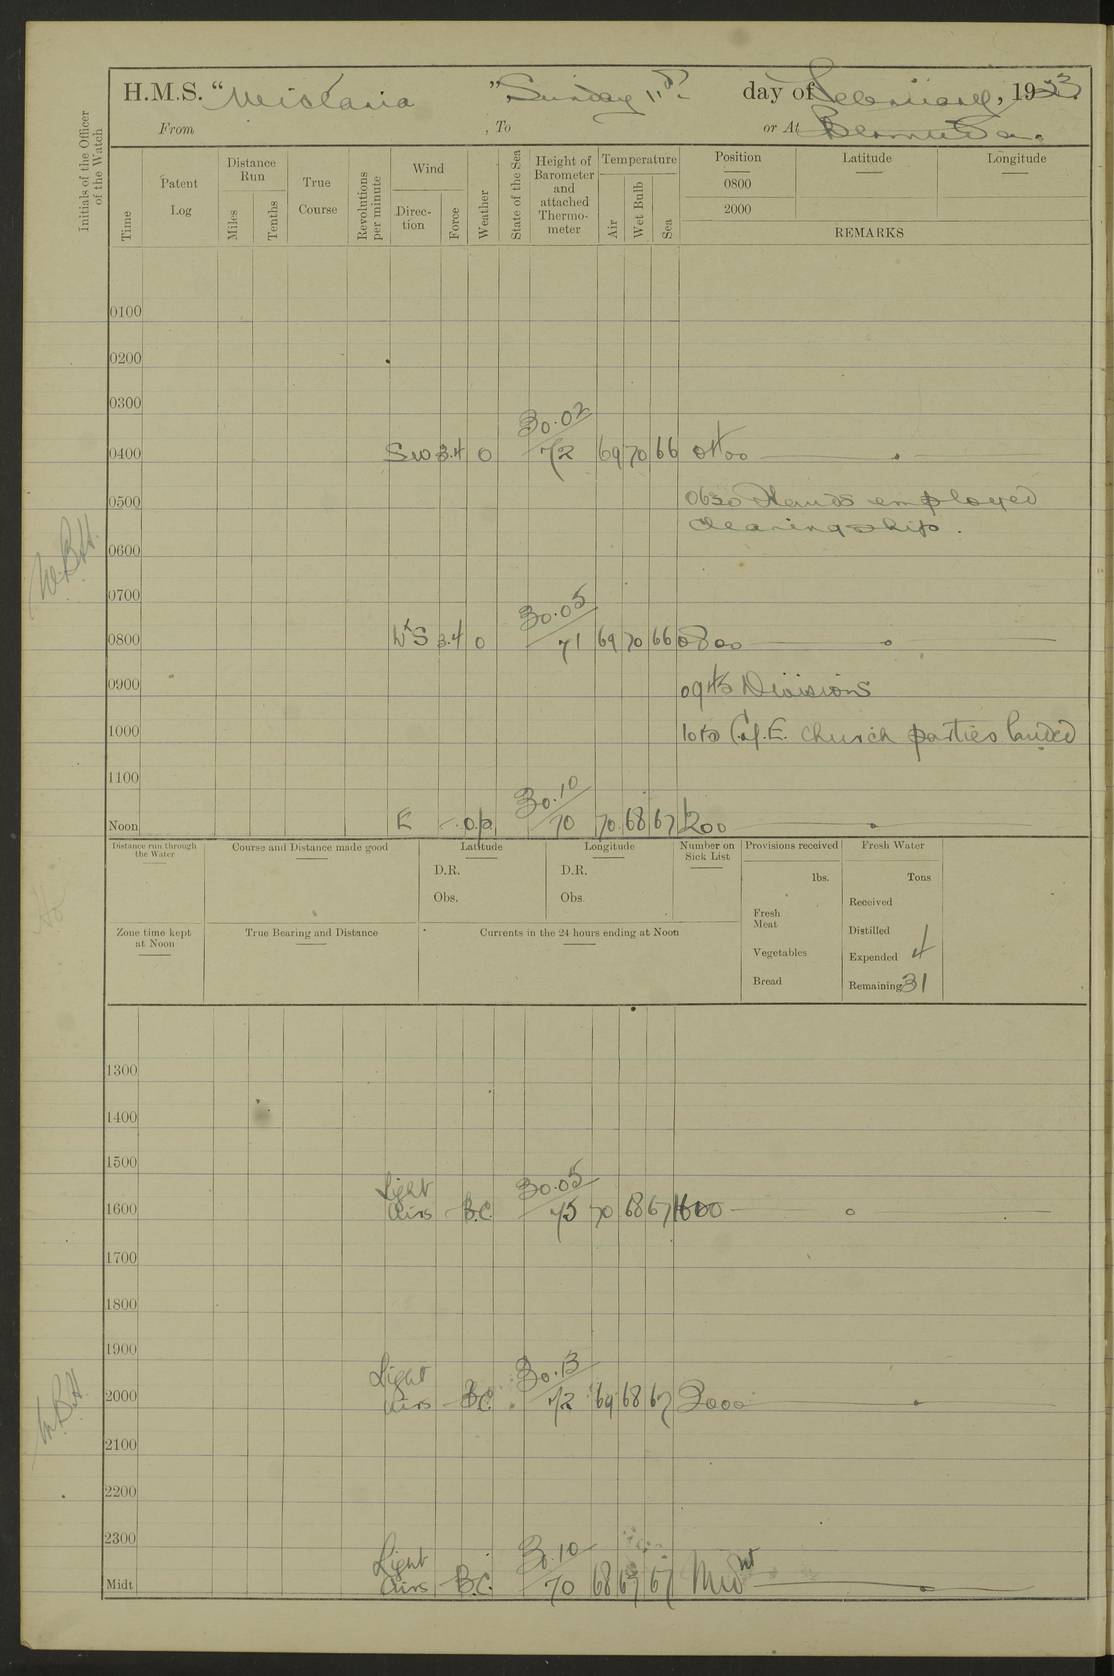 H.M.S. “Wistaria ” Sunday 11th day of February, 1923.
From , To or At Bermuda.
Initials of the Officer of the Watch
Time
Patent Log
Distance Run
Miles
Tenths
True Course
Revolutions per minute
Wind
Direc-tion
Force
Weather
State of the Sea
Height of Barometer and attached Thermo-meter
Temperature
Air
Wet Bulb
Sea
Position Latitude Longitude
0800
2000
REMARKS
0100
0200
0300
30.02
0400 SW 3.4 O 72 69 70 66 0400
0500 0630 Hands employed
cleaning ship.
W.B.H.
0600
0700
30.05
0800 WxS 3.4 O 71 69 70 66 0800
0900 0945 Divisions
1000 C. of E. church parties landed
1100
30.10
Noon E - o.p. 70 70 68 67 1200
Distance run through the Water
Course and Distance made good
Latitude
D.R.
Obs.
Longitude
D.R.
Obs.
Number on Sick List
Provisions received
lbs.
Fresh Meat
Vegetables
Bread
Fresh Water
Tons
Received
Distilled
Expended 4
Remaining 31
Zone time kept at Noon
True Bearing and Distance
Currents in the 24 hours ending at Noon
1300
1400
1500
Light 30.05
1600 airs - B.C. 75 70 68 67 1600
1700
1800
1900
Light 30.13
2000 airs - B.C. 72 69 68 67 2000
W.B.H.
2100
2200
2300
Light 30.10
Midt airs - B.C. 70 68 67 67 Midnt